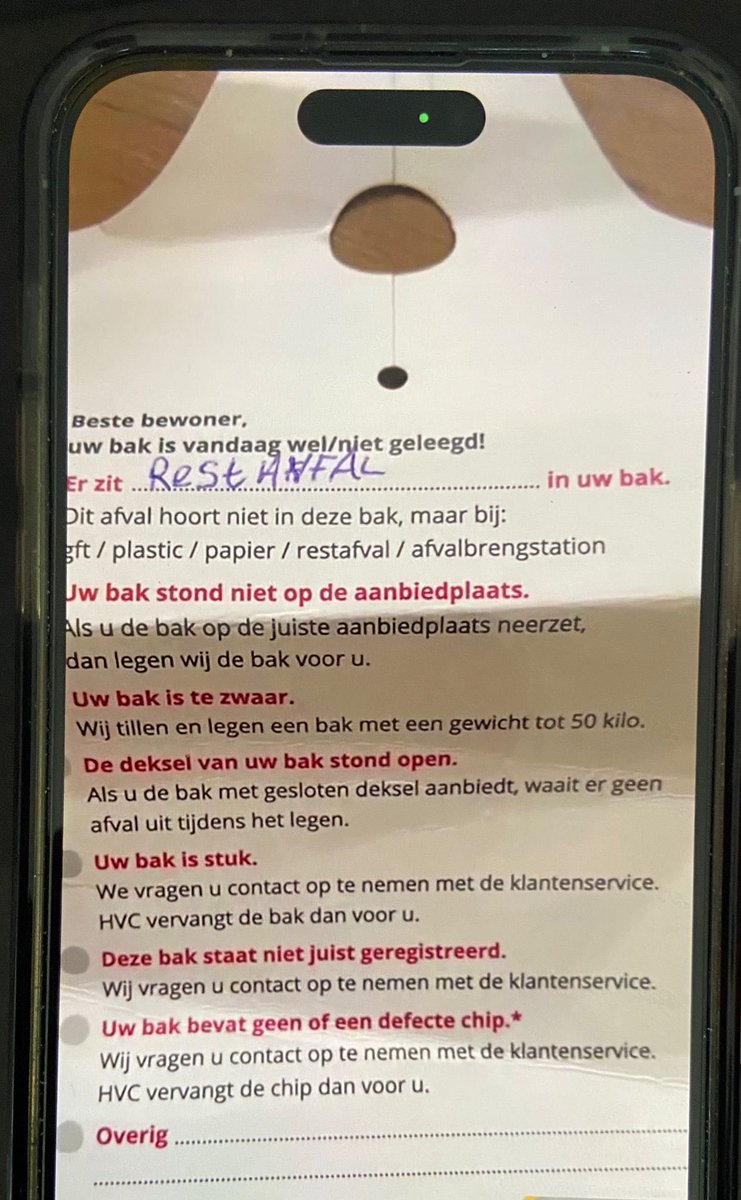 Beste bewoner,
uw bak is vandaag wel/niet geleegd!
Er zit ReSt AfFAL in uw bak.
Dit afval hoort niet in deze bak, maar bij:
gft / plastic / papier / restafval / afvalbrengstation
Uw bak stond niet op de aanbiedplaats.
Als u de bak op de juiste aanbiedplaats neerzet,
dan legen wij de bak voor u.
Uw bak is te zwaar.
Wij tillen en legen een bak met een gewicht tot 50 kilo.
De deksel van uw bak stond open.
Als u de bak met gesloten deksel aanbiedt, waait er geen
afval uit tijdens het legen.
Uw bak is stuk.
We vragen u contact op te nemen met de klantenservice.
HVC vervangt de bak dan voor u.
Deze bak staat niet juist geregistreerd.
Wij vragen u contact op te nemen met de klantenservice.
Uw bak bevat geen of een defecte chip.*
Wij vragen u contact op te nemen met de klantenservice.
HVC vervangt de chip dan voor u.
Overig